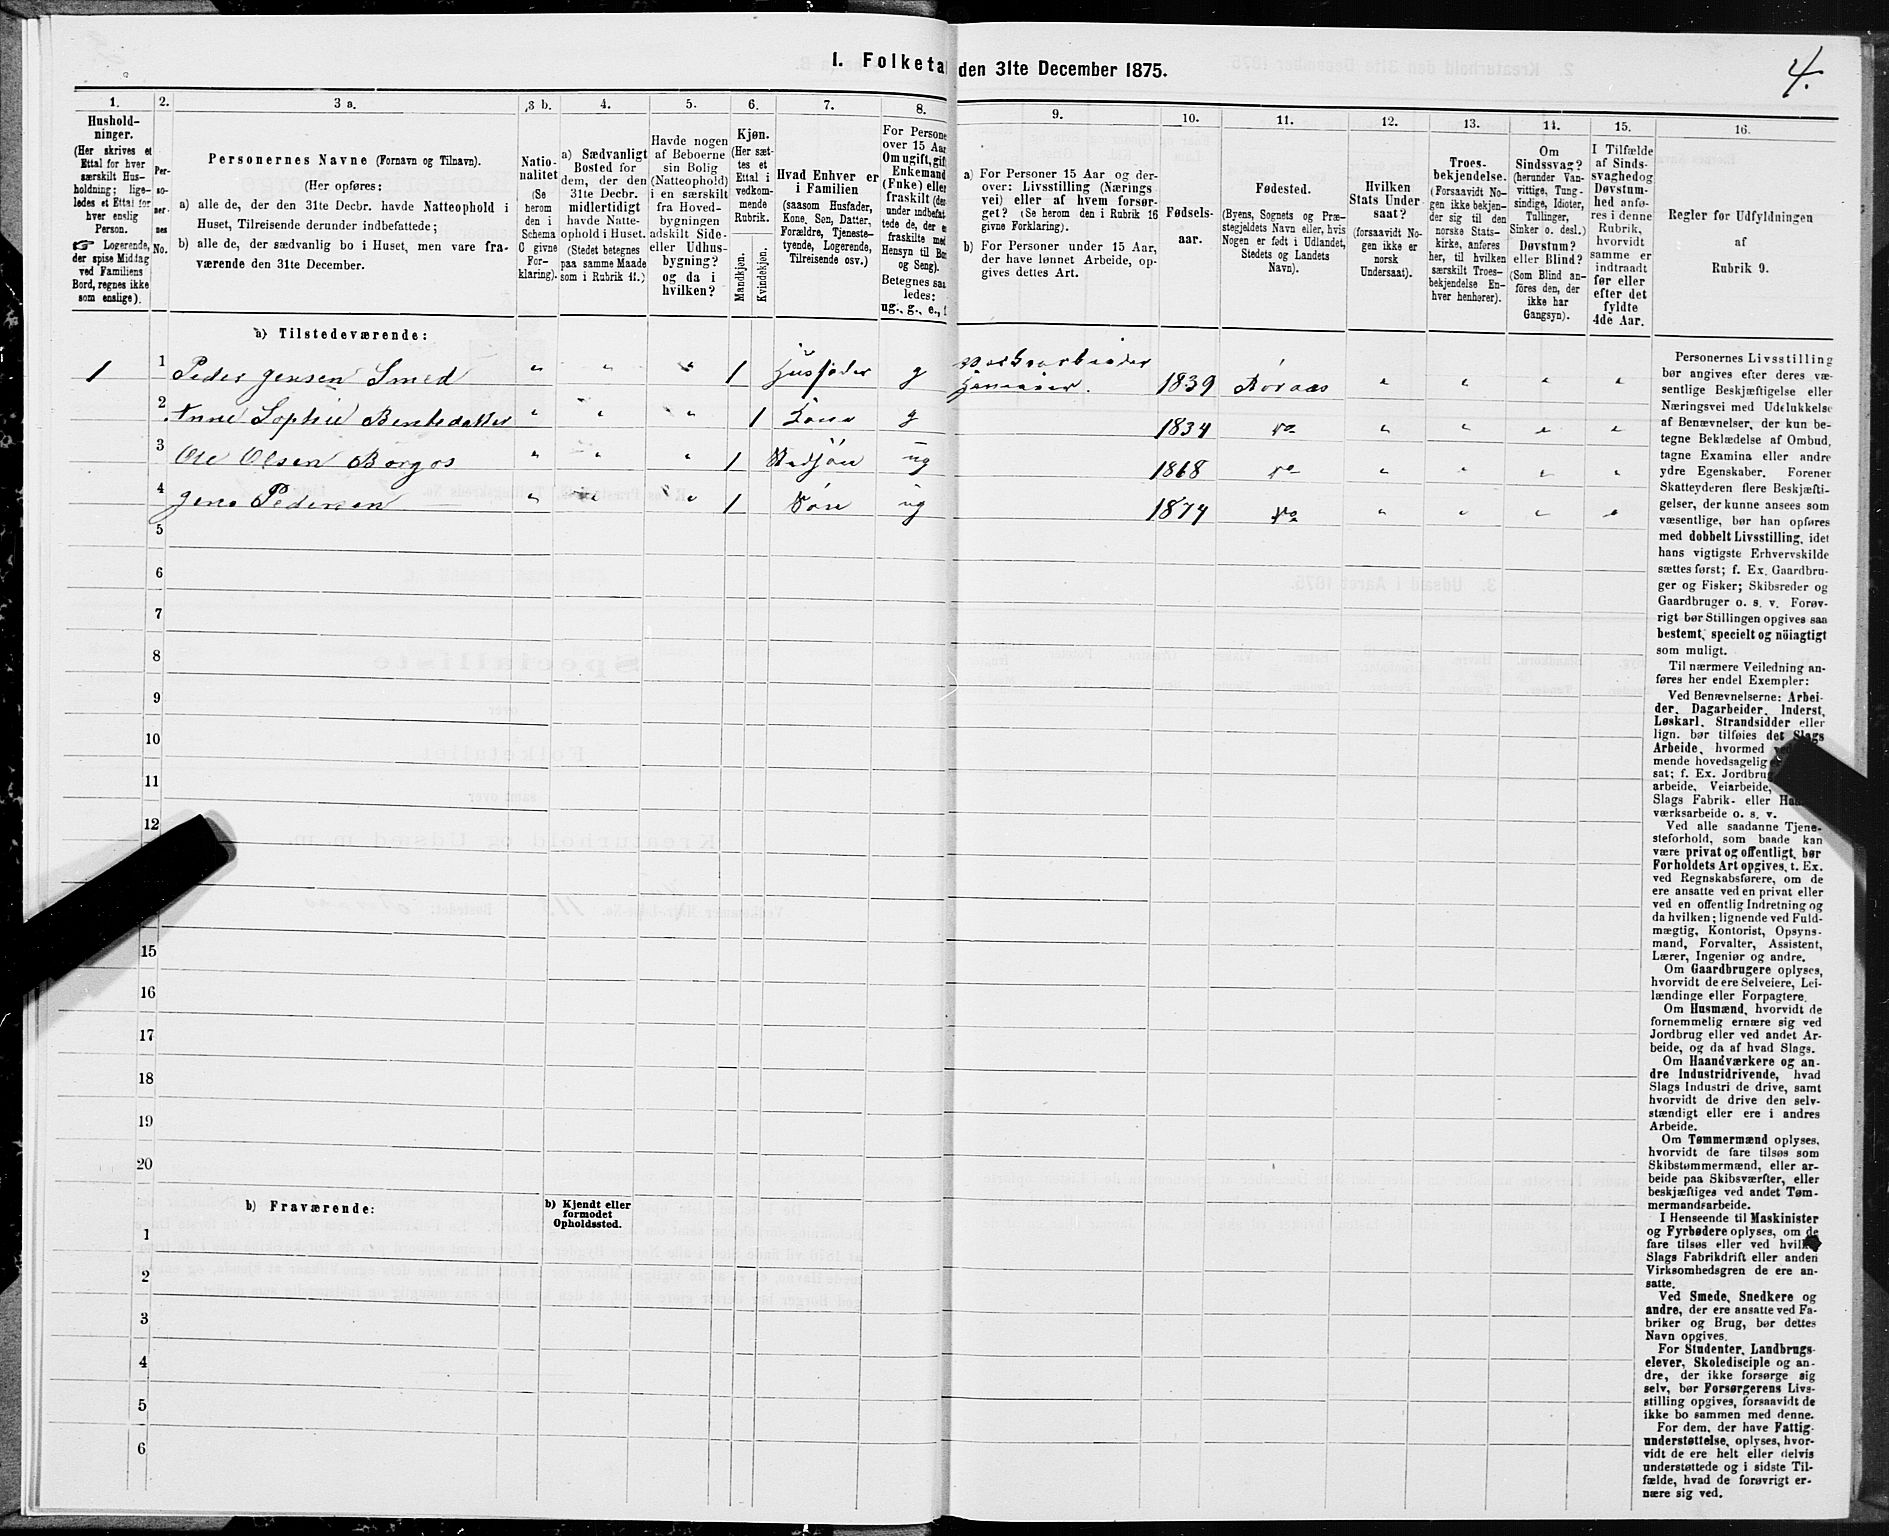 1. Folketal den 31te December 1875.
4.
1. 2. 3 a. 3 b. 4. 5. 6. 7. 8. 9. 10. 11. 12. 13. 14. 15. 16.
Hushold-
ninger.
(Her skrives et
Ettal for hver
særskilt Hus-
holdning; lige-
ledes et Ettal for
hver enslig
Person.
☞ Logerende,
der spise Middag
ved Familiens
Bord, regnes ikke
som enslige).
Per-
so-
ner-
nes
No.
Personernes Navne (Fornavn og Tilnavn).
(Her opføres:
a) alle de, der den 31te Decbr. havde Natteophold i
Huset, Tilreisende derunder indbefattede;
b) alle de, der sædvanlig bo i Huset, men vare fra-
værende den 31te December.
Natio-
nalitet
(Se
herom
den i
Schema
C givne
For-
klaring).
a) Sædvanligt
Bosted for
dem, der den
31te Decbr.
midlertidigt
havde Natte-
ophold i Huset.
(Stedet betegnes
paa samme Maade
som i Rubrik 11.)
Havde nogen
af Beboerne
sin Bolig
(Natteophold)
i en særskilt
fra Hoved-
bygningen
adskilt Side-
eller Udhus-
bygning?
og da i
hvilken?
Kjøn.
(Her sæt-
tes et
Ettal i
vedkom-
mende
Rubrik.
Mandkjøn.
Kvindekjøn.
Hvad Enhver er
i Familien
(saasom Husfader,
Kone, Søn, Datter,
Forældre, Tjeneste-
tyende, Logerende,
Tilreisende osv.)
For Persone
over 15 Aar
Om ugift, gift
Enkemand
(Enke) eller
fraskilt (des
under indbefat
tede de, der e
fraskilte med
Hensyn til Bo
og Seng).
Betegnes saa
ledes:
ug., g., e., f
a) For Personer 15 Aar og der-
over: Livsstilling (Nærings
vei) eller af hvem forsør-
get? (Se herom den i Rubrik 16
givne Forklaring).
b) For Personer under 15 Aar,
der have lønnet Arbeide, op-
gives dettes Art.
Fødsels-
aar.
Fødested.
(Byens, Sognets og Præ-
stegjeldets Navn eller, hvis
Nogen er født i Udlandet,
Stedets og Landets
Navn).
Hvilken
Stats Under
saat?
(forsaavidt No-
gen ikke er
norsk
Undersaat).
Troes-
bekjendelse.
(Forsaavidt No-
gen ikke bekjen-
der sig til den
norske Stats-
kirke, anføres
her, til hvilken
særskilt Troes-
bekjendelse En-
hver henhører).
Om
Sindssvag?
(herunder Van-
vittige, Tung-
sindige, Idioter,
Tullinger,
Sinker o. desl.)
Døvstum?
eller Blind?
(Som Blind an-
føres den, der
ikke har
Gangsyn).
I Tilfælde
af Sinds-
svaghed og
Døvstum-
hed anfø-
res i denne
Rubrik,
hvorvidt
samme er
indtraadt
før eller
efter det
fyldte
4de Aar.
Regler for Udfyldningen
af
Rubrik 9.
a) Tilstedeværende:
1 1 Peder Jensen Smed " " " 1 Husfader g 1839 Røraas " " " "
2 Anne Sophie Bentsdatter " " " 1 Kone g 1834 do " " " "
3 Ole Olsen Borgos " " " 1 Stedsøn ug 1868 do " " " "
4 Jens Pedersen " " " 1 Søn ug 1874 do " " " "
5
6
7
8
9
10
11
12
15
16
17
18
19
20
b) Fraværende:
b) Kjendt eller
formodet
Opholdssted.
1
2
3
4
5
6
Personernes Livsstilling
bør angives efter deres væ-
sentlige Beskjæftigelse eller
Næringsvei med Udelukkelse
af Benævnelser, der kun be-
tegne Beklædelse af Ombud,
tagne Examina eller andre
ydre Egenskaber. Forener
Skatteyderen flere Beskjæfti-
gelser, der kunne ansees som
væsentlige, bør han opføres
med dobbelt Livsstilling, idet
hans vigtigste Erhvervskilde
sættes først; f. Ex. Gaardbru-
ger og Fisker; Skibsreder og
Gaardbruger o. s. v. Forøv-
rigt bør Stillingen opgives saa
bestemt, specielt og nöiagtigt
som muligt.
Til nærmere Veiledning an-
føres her endel Exempler:
Ved Benævnelserne: Arbei-
der, Dagarbeider, Inderst,
Løskarl, Strandsidder eller
lign. bør tilføies det Slags
Arbeide, hvormed
mende hovedsagelig
sat; f. Ex. Jordbrug
arbeide, Veiarbeide,
Slags Fabrik- eller
værksarbeide o. s. v.
Ved alle saadanne Tjene-
steforhold, som baade kan
være privat og offentligt, bør
Forholdets Art opgives, t. Ex.
ved Regnskabsførere, om de
ere ansatte ved en privat eller
ved en offentlig Indretning og
da hvilken; lignende ved Fuld-
mægtig, Kontorist, Opsyns-
mand, Forvalter, Assistent,
Lærer, Ingeniør og andre.
Om Gaardbrugere oplyses,
hvorvidt de ere Selveiere, Lei-
lændinge eller Forpagtere.
Om Husmænd, hvorvidt de
fornemmelig ernære sig ved
Jordbrug eller ved andet Ar-
beide, og da af hvad Slags.
Om Haandværkere og an-
dre Industridrivende, hvad
Slags Industri de drive, samt
hvorvidt de drive den selv-
stændigt eller ere i andres
Arbeide.
Om Tømmermænd oplyses,
hvorvidt de fare tilsøs som
Skibstømmermænd, eller ar-
beide paa Skibsværfter, eller
beskjæftiges ved andet Tøm-
mermandsarbeide.
I Henseende til Maskinister
og Fyrbødere oplyses, om de
fare tilsøs eller ved hvilke
Slags Fabrikdrift eller anden
Virksomhedsgren de ere an-
satte.
Ved Smede, Snedkere og
andre, der ere ansatte ved Fa-
briker og Brug, bør dettes
Navn opgives.
For Studenter, Landbrugs-
elever, Skoledisciple og an-
dre, der ikke forsørge sig
selv, bør Forsørgerens Livs-
stilling opgives, forsaavidt de
ikke bo sammen med denne.
For dem, der have Fattig-
understøttelse, oplyses, hvor-
vidt de ere helt eller delvis
understøttede og i sidste Til-
fælde, hvad de forøvrigt er-
nære sig ved.